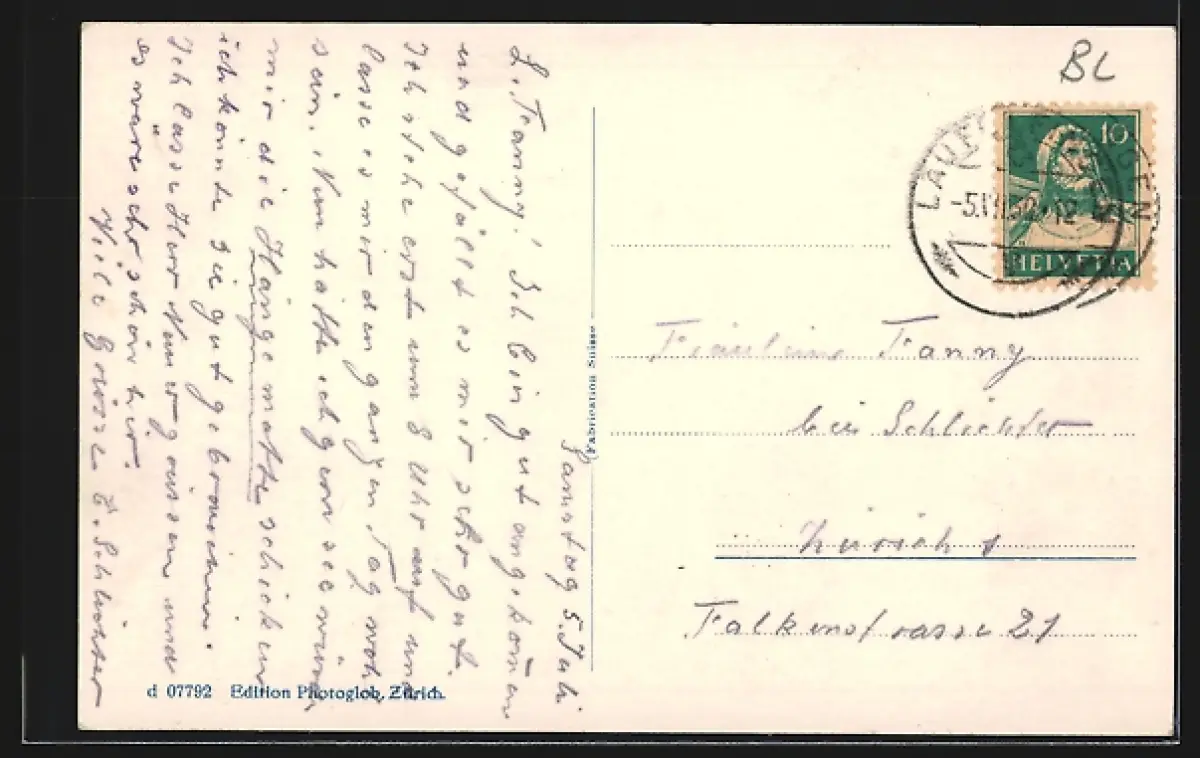 BL
10
HELVETIA
-5.VII. 12
Samstag 5. Juli
L. Fanny! Ich bin gut angekomen
und gefällt es mir sehr gut.
Ich stehe erst um 8 Uhr auf und
lasse es mir den ganzen Tag wohl
sein. Nun hätte ich gern sie würden
mir die Hängematte schicken
ich könnte sie gut gebrauchen.
Ich lasse Herr grüssen und
es wäre sehr schön hier.
Viele Grüsse E. Schlichter
Fräulein Fanny
bei Schlichter
Zürich 1
Falkenstrasse 21
Fabrication Suisse
d 07792 Edition Photoglob, Zürich.